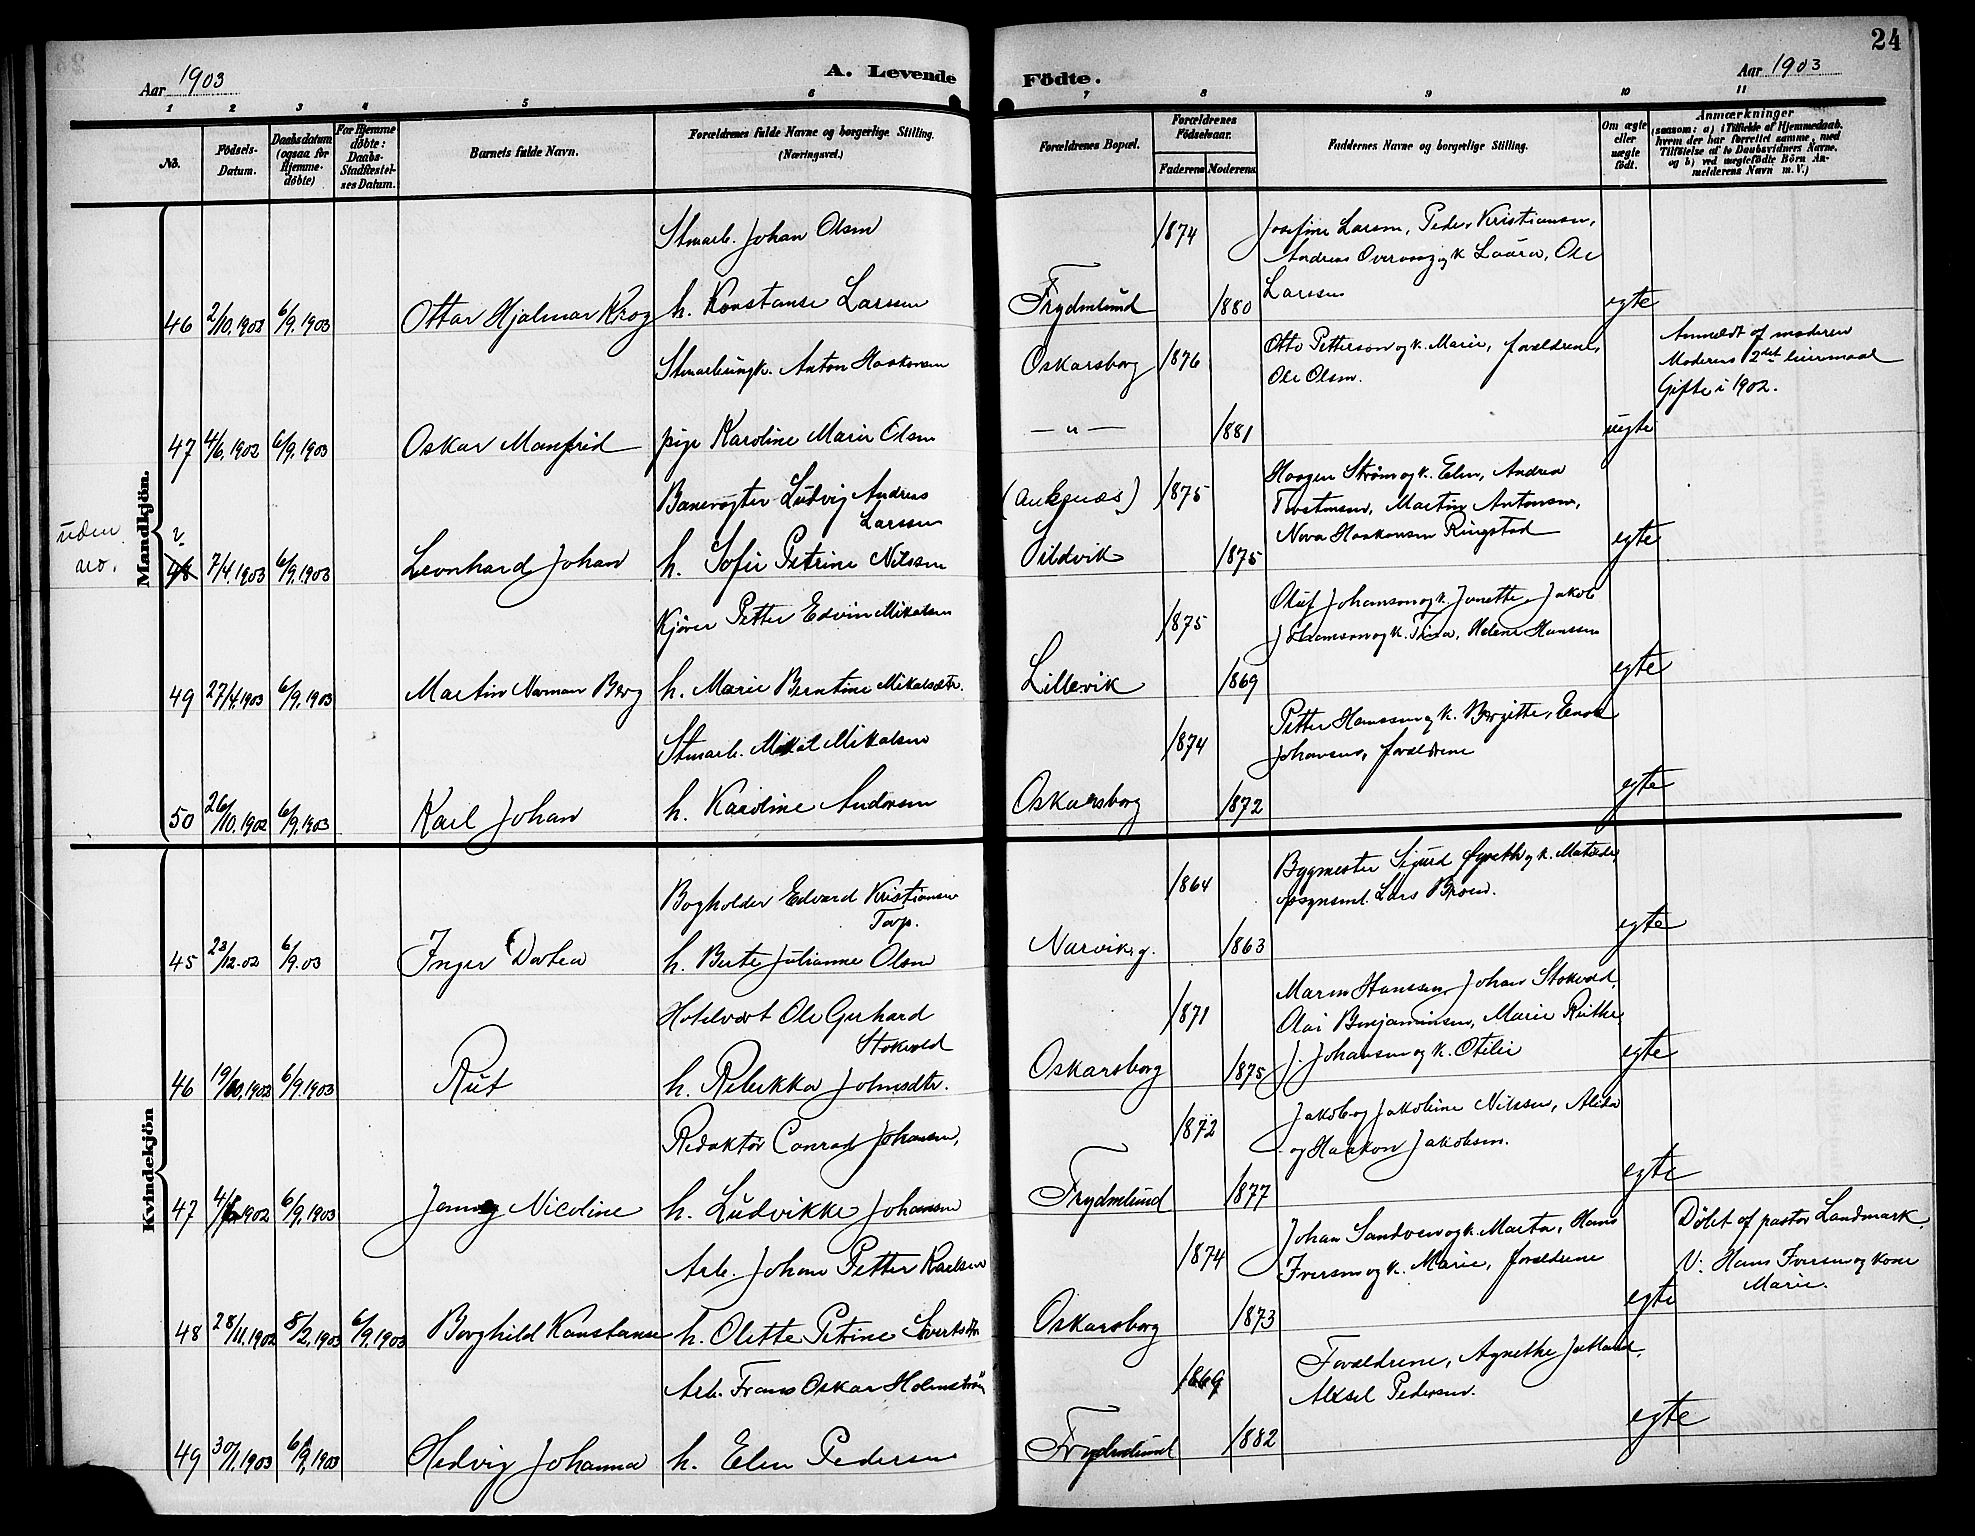 24
Aar 1903
A. Levende Födte.
Aar 1903
1 2 3 4 5 6 7 8 9 10 11
No.
Födsels-
Datum.
Daabsdatum
(ogsaa for
Hjemme-
döbte)
For Hjemme
döbte:
Daabs-
Stadfæstel-
ses Datum.
Barnets fulde Navn.
Forældrenes fulde Navne og borgerlige Stilling.
(Næringsvei.)
Forældrenes Bopæl.
Forældrenes
Födselsaar.
Faderens Moderens
Faddernes Navne og borgerlige Stilling.
Om ægte
eller
uægte
födt.
Anmærkninger
(saasom: a) i Tilfælde af Hjemmedaab,
hvem der har forrettet samme, med
Tilföielse af to Daabsvidners Navne,
og b) ved uægtefödte Börn An-
melderens Navn m. V.)
Mandkjön.
Stmarb. Johan Olsen
1874
Josefine Larsen, Peder Kristiansen,
Andreas og k. Laura, Ole
Larsen
46 2/10.1902 6/9.1903 Ottar Hjalmar Krog h. Konstanse Larssen Frydenlund 1880 egte
Stmarb. ungk. Anton Haakonsen Oskarsborg 1876
Otto Petterson og k. Marie, forældrene,
Ole Olsen.
Anmeldt af moderen
Moderens 2det leiermaal
Gifte i 1902.
47 4/6.1902 6/9.1903 Oskar Manfrid pige Karoline Marie Olsen — " — 1881 uegte
Banevogter Ludvig Andreas
Larssen
(Ankenæs) 1875
Haagen Strøm og k. Elen, Andrea
Torstensen, Martin Antonsen,
Nora Haakonsen Ringstad
uden
no.
48 7/4.1903 6/9.1903 Leonhard Johan h. Sofie Petrine Nilssen Sildvik 1875 egte
Kjører Petter Edvin Mikalsen
1875
Oluf Johansen og k. Janette, Jakob
Johansen og k. Tina, Helene Hanssen
49 27/4.1903 6/9.1903 Martin Norman Berg h. Marie Berntine Mikalsdtr. Lillevik 1869 egte
Stmarb. Mikal Mikalsen
1874
Petter Hanssen og k. Birgitte, Enok
Johansen, forældrene
50 26/10.1902 6/9.1903 Karl Johan h. Karoline Andersen Oskarsborg 1872 egte
Kvindekjön
Bogholder Edvard Kristiansen
Torp.
1864
Bygmester Sigurd og k. Matilde,
opsynsmd. Lars Broen.
45 23/12.02 6/9.03 Inger Dortea h. Berte Julianne Olsen Narvik g. 1863 egte
Hotelvært Ole Gerhard
Stokvold
1871
Maren Hanssen, Johan Stokvold,
Olai Benjaminsen, Marie Ruthe,
J. Johansen og k. Otilie
46 19/10.1902 6/9.1903 Rut h. Rebekka Johnsdtr. Oskarsborg 1875 egte
Redaktør Conrad Johansen,
1872
Jakob og Jakobine Nilssen, Alida
og Haakon Jakobsen.
47 6/9.1903 Jenny Nicoline h. Ludvikke Johansen Frydenlund 1877 egte
Arb. Johan Petter Karlsen
1874
Johan Sandven og k. Marta, Hans
Iversen og k. Marie, forældrene
Døbt af pastor Landmark.
V: Hans Iversen og kone
Marie.
48 28/11.1902 8/2.1903 6/9.1903 Borghild Konstanse h. Olette Petrine Sivertsdtr Oskarsborg 1873 egte
Arb. Frans Oskar Holmström
1869
Forældrene, Agnethe Jutland,
Aksel Pedersen.
49 30/1.1903 6/9.1903 Hedvig Johanna h. Elen Pedersen Frydenlund 1882 egte